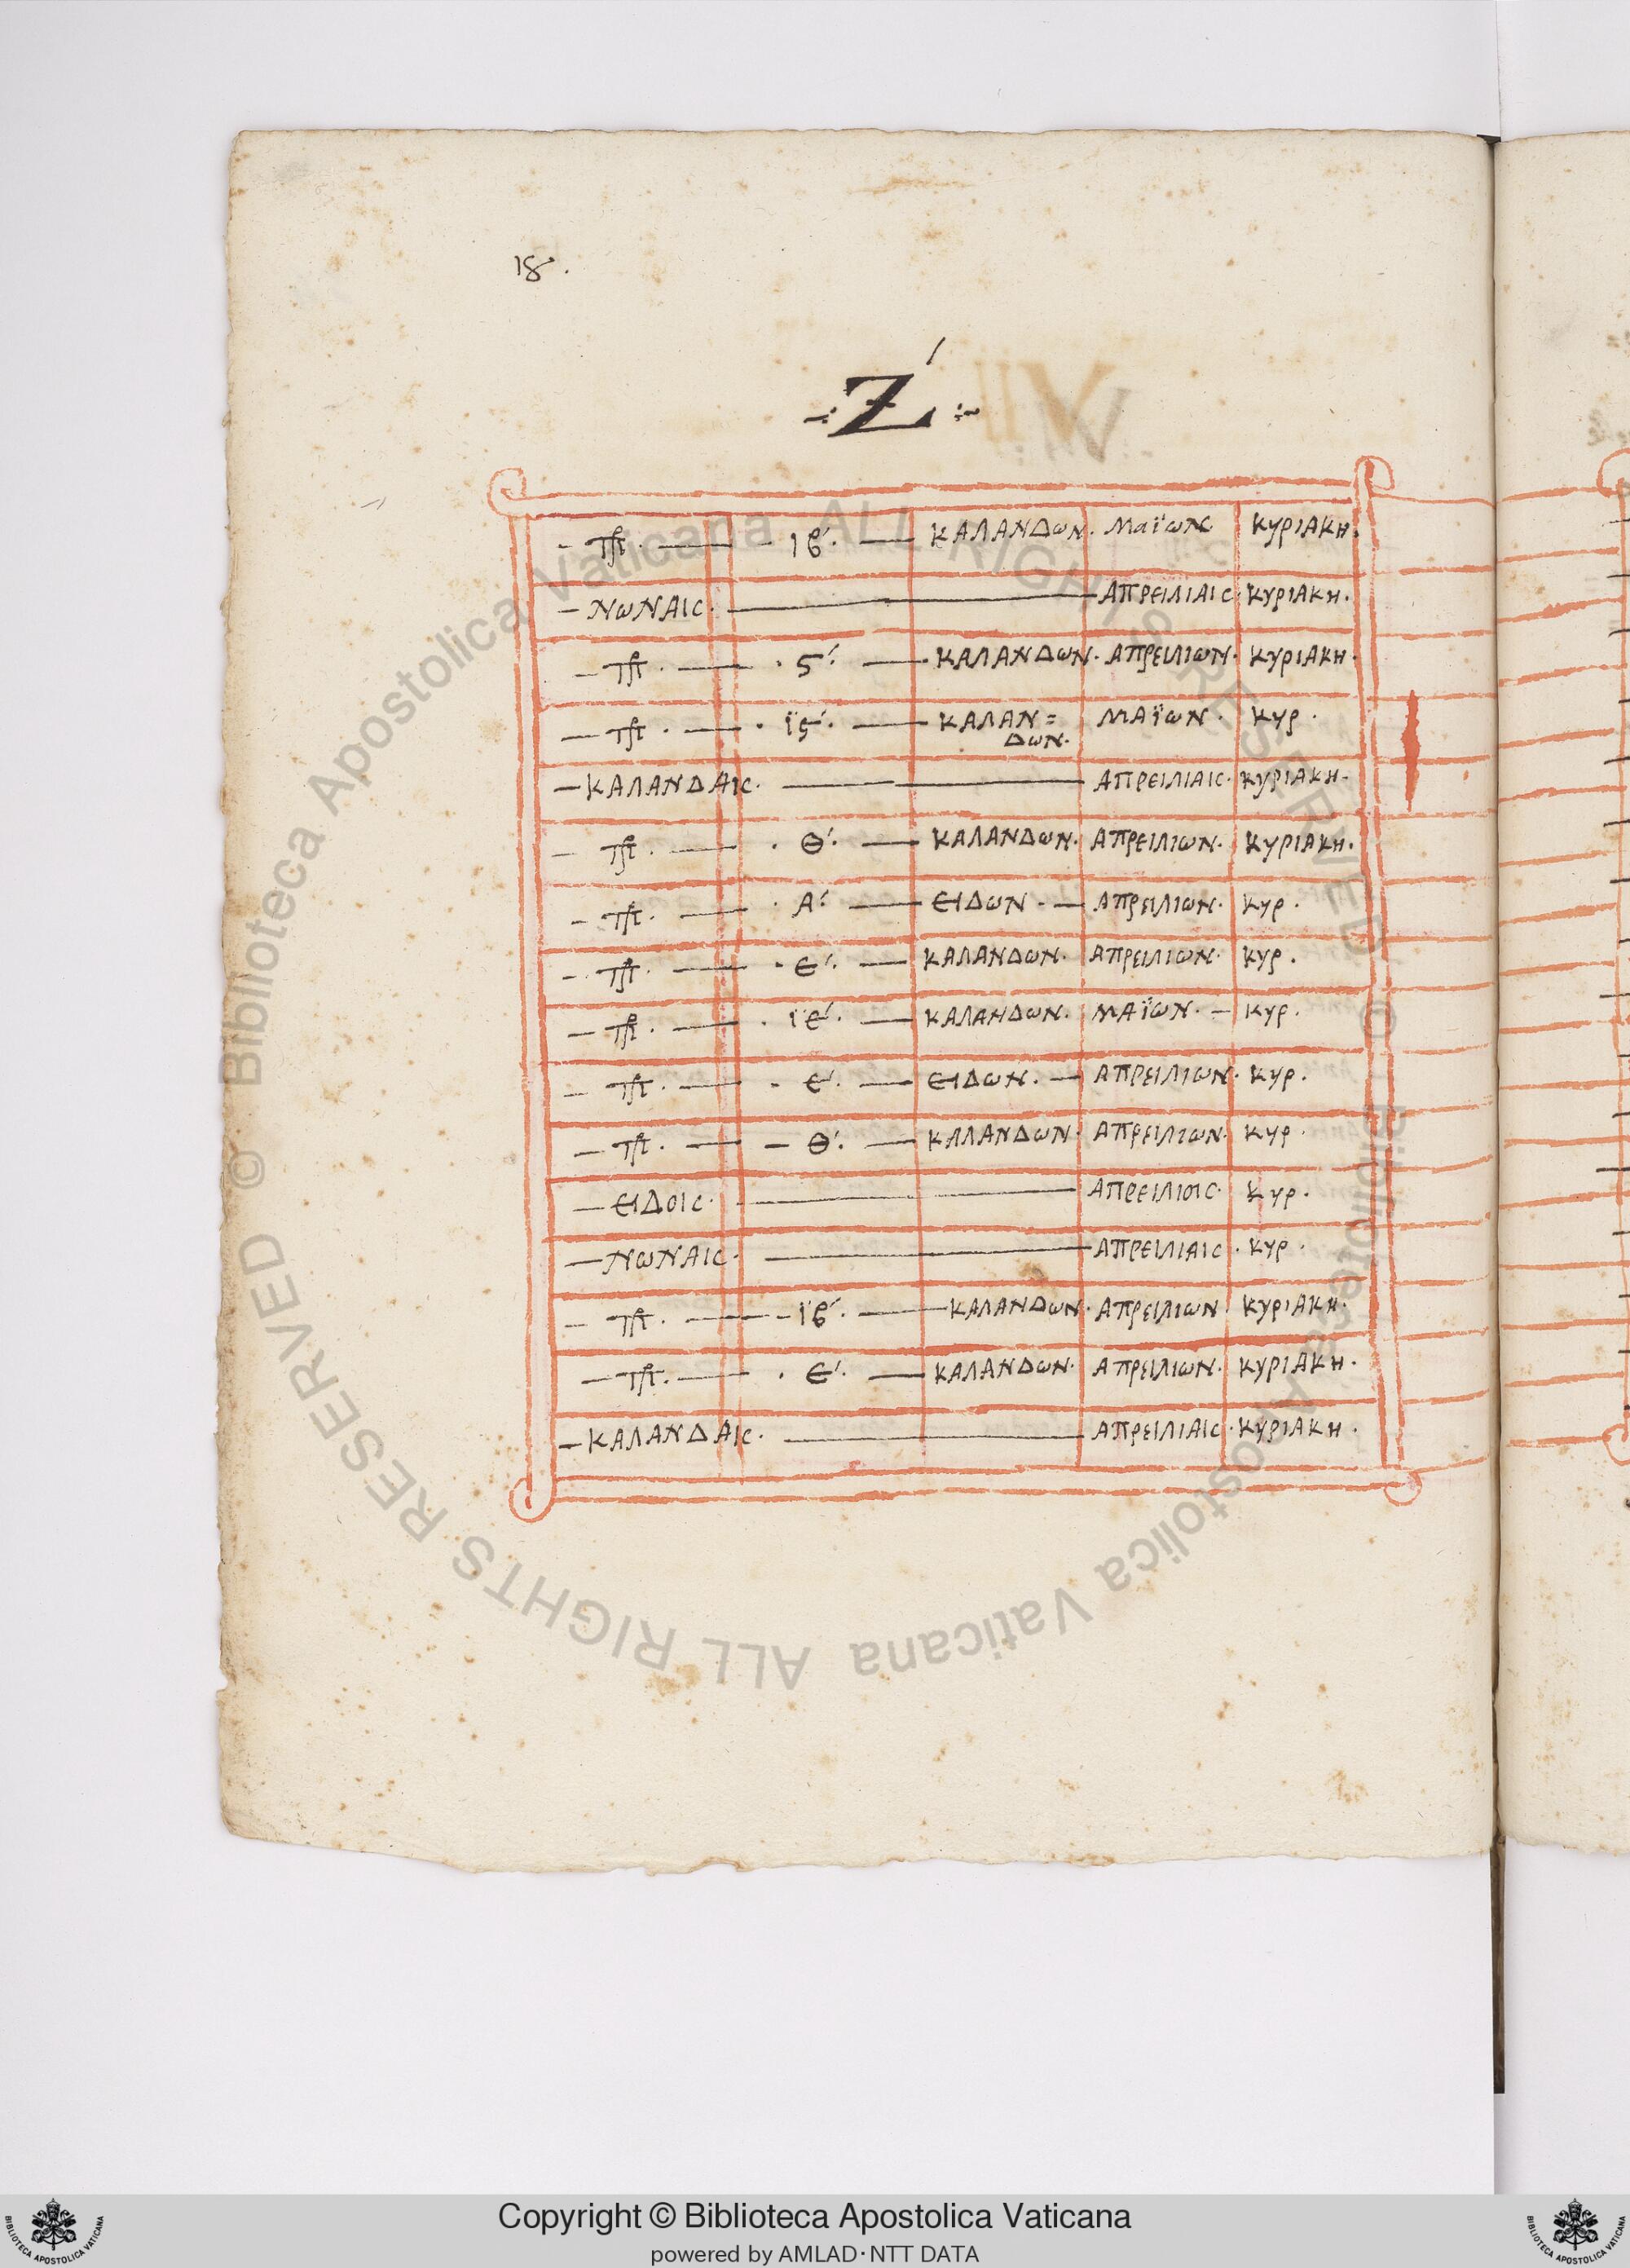 18.
Ζ´
ΙΒ´. ΚΑΛΑΝΔωΝ. ΜαϊωΝ ΚΥΡΙΑΚΗ.
ΝωΝΑΙϹ. ΑΠΡΕΙΛΙΑΙϹ. ΚΥΡΙΑΚΗ.
Ϛ´. ΚΑΛΑΝΔωΝ. ΑΠΡΕΙΛΙωΝ. ΚΥΡΙΑΚΗ.
ΪϚ´. ΚΑΛΑΝ= ΜΑΪωΝ. ΚΥΡ.
ΔωΝ.
ΚΑΛΑΝΔΑΙϹ. ΑΠΡΕΙΛΙΑΙϹ. ΚΥΡΙΑΚΗ.
Θ´. ΚΑΛΑΝΔωΝ. ΑΠΡΕΙΛΙωΝ. ΚΥΡΙΑΚΗ.
Α´. ΕΙΔωΝ. ΑΠΡΕΙΛΙωΝ. ΚΥΡ.
Ε´. ΚΑΛΑΝΔωΝ. ΑΠΡΕΙΛΙωΝ. ΚΥΡ.
ΪΕ´. ΚΑΛΑΝΔωΝ. ΜΑΪωΝ. ΚΥΡ.
Ε´. ΕΙΔωΝ. ΑΠΡΕΙΛΙωΝ. ΚΥΡ.
Θ´. ΚΑΛΑΝΔωΝ. ΑΠΡΕΙΛΙωΝ. ΚΥΡ.
ΕΙΔΟΙϹ. ΑΠΡΕΙΛΙΟΙϹ. ΚΥΡ.
ΝωΝΑΙϹ. ΑΠΡΕΙΛΙΑΙϹ. ΚΥΡ.
ΪΒ´. ΚΑΛΑΝΔωΝ. ΑΠΡΕΙΛΙωΝ ΚΥΡΙΑΚΗ.
Ε´. ΚΑΛΑΝΔωΝ. ΑΠΡΕΙΛΙωΝ. ΚΥΡΙΑΚΗ.
ΚΑΛΑΝΔΑΙϹ. ΑΠΡΕΙΛΙΑΙϹ. ΚΥΡΙΑΚΗ.
© Biblioteca Apostolica Vaticana ALL RIGHTS RESERVED © Biblioteca Apostolica Vaticana ALL RIGHTS RESERVED
Copyright © Biblioteca Apostolica Vaticana
powered by AMLAD·NTT DATA
BIBLIOTECA APOSTOLICA VATICANA
BIBLIOTECA APOSTOLICA VATICANA